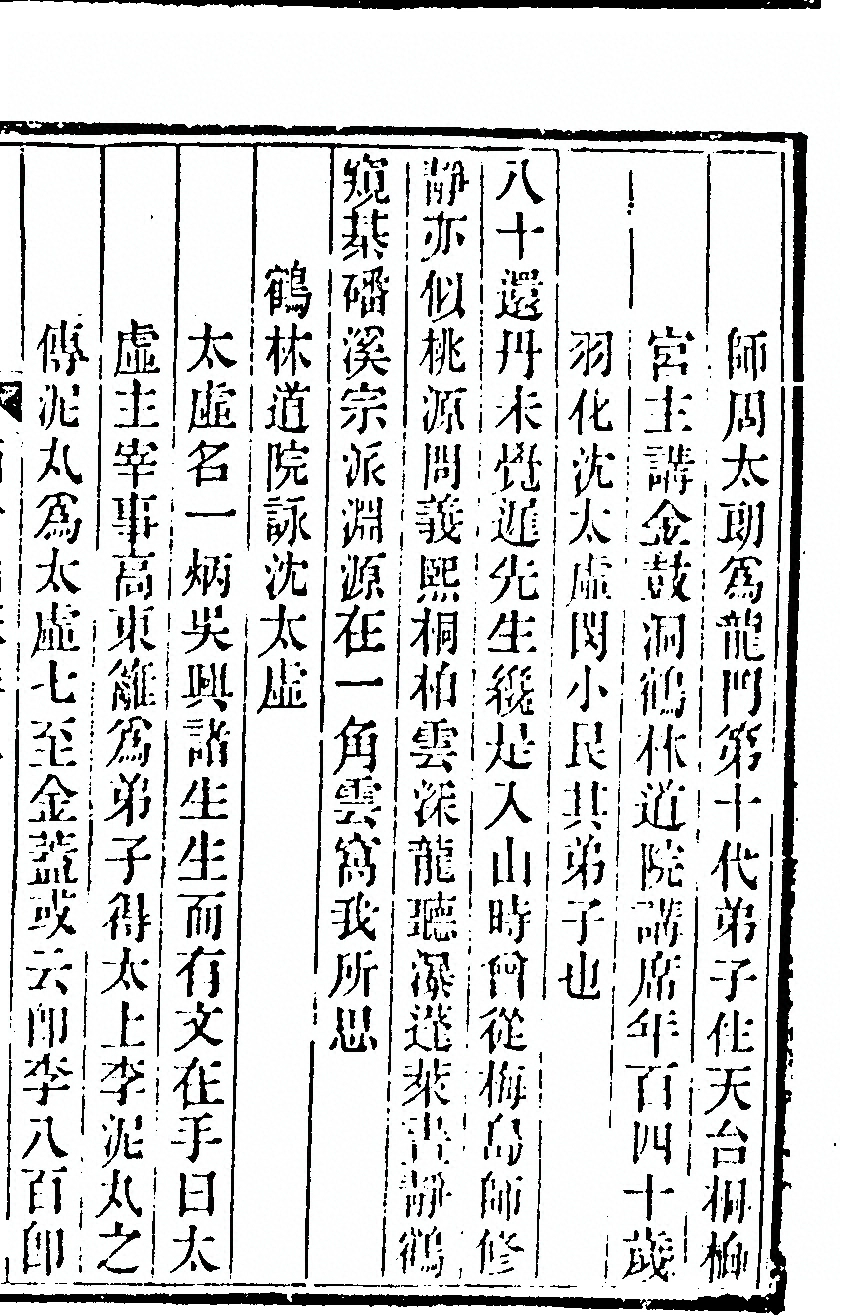 師周太朗爲龍門第十代弟子住天台桐柏
宮主講金鼓洞鶴林道院講席年百四十歲
羽化沈太虛閔小艮其弟子也
八十還丹未覺遲先生纔是入山時曾從梅島師修
靜亦似桃源問義熙桐柏雲深龍聽瀑蓬萊書靜鶴
窺棊磻溪宗派淵源在一角雲窩我所思
鶴林道院詠沈太虛
太虛名一炳吳興諸生生而有文在手曰太
虛主宰事高東籬爲弟子得太上李泥丸之
傳泥丸爲太虛七至金蓋或云卽李八百卽